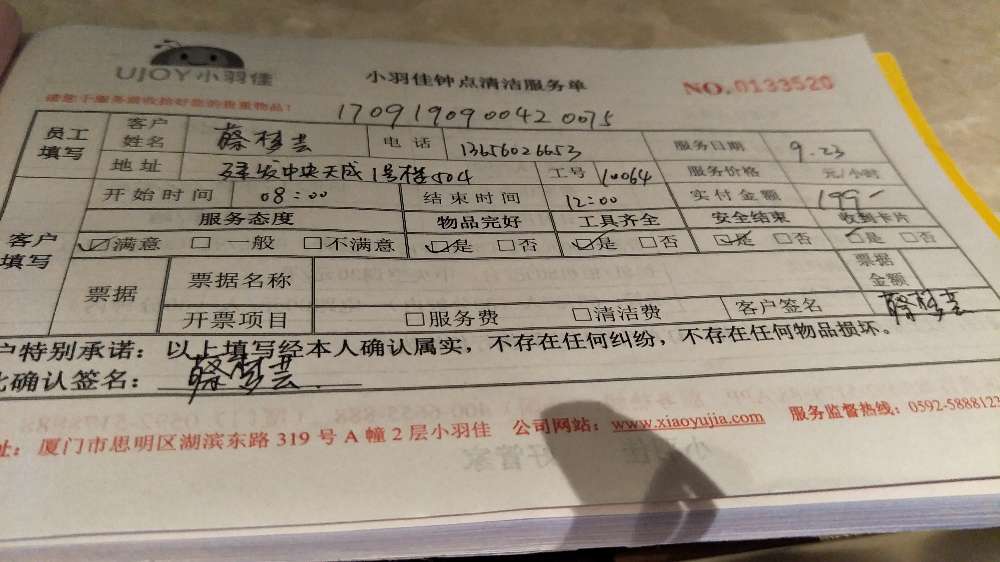 UJOY小羽佳
小羽佳钟点清洁服务单
NO.0133520
请您于服务前收拾好您的贵重物品!
170919090042 0075
员工填写 客户姓名 蔡梦芸 电话 13656026653 服务日期 9.23
地址 建发中央天成1号楼504 工号 10064 服务价格 元/小时
客户填写 开始时间 08:00 结束时间 12:00 实付金额 199-
服务态度 物品完好 工具齐全 安全结束 收到卡片
☑满意 □一般 □不满意 ☑是 □否 ☑是 □否 ☑是 □否 ☑是 □否
票据 票据名称 票据金额
开票项目 □服务费 □清洁费 客户签名 蔡梦芸
户特别承诺:以上填写经本人确认属实,不存在任何纠纷,不存在任何物品损坏。
此确认签名: 蔡梦芸
址:厦门市思明区湖滨东路 319 号 A 幢 2 层小羽佳 公司网站:www.xiaoyujia.com 服务监督热线:0592-5888123